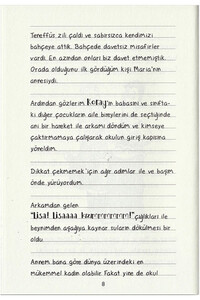 Teneffüs zili çaldı ve sabırsızca kendimizi
bahçeye attık. Bahçede davetsiz misafirler
vardı. En azından onları biz davet etmemiştik.
Orada olduğunu ilk gördüğüm kişi Maria'nın
annesiydi.
Ardından gözlerim Koray'ın babasını ve sınıfta-
ki diğer çocukların aile bireylerini de seçtiğinde
ani bir hareket ile arkamı döndüm ve kimseye
çaktırmamaya çalışarak okulun giriş kapısına
yöneldim.
Dikkat çekmemek için ağır adımlar ile ve başım
önde yürüyordum.
Arkamdan gelen
çığlıkları ile
beynimden aşağıya kaynar suların dökülmesi bir
oldu.
Annem bana göre dünya üzerindeki en
mükemmel kadın olabilir. Fakat yine de okul
8